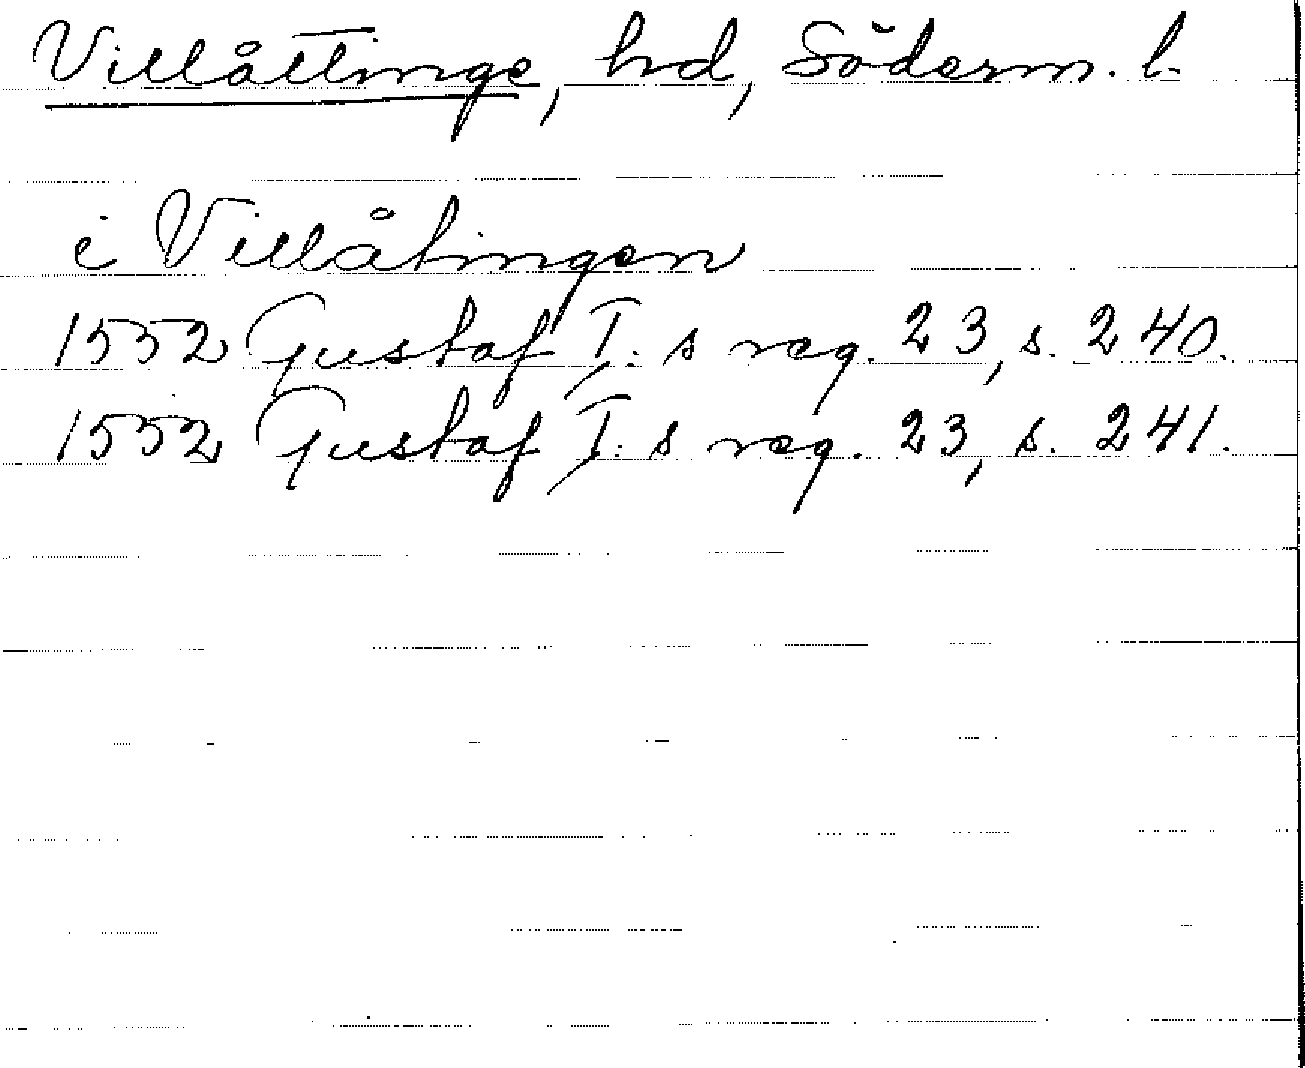 Villåttinge, hd, Söderm. l.
i Villåtingen
1552 Gustaf I: s reg. 23, s. 240.
1552 Gustaf I: s reg. 23, s. 241.